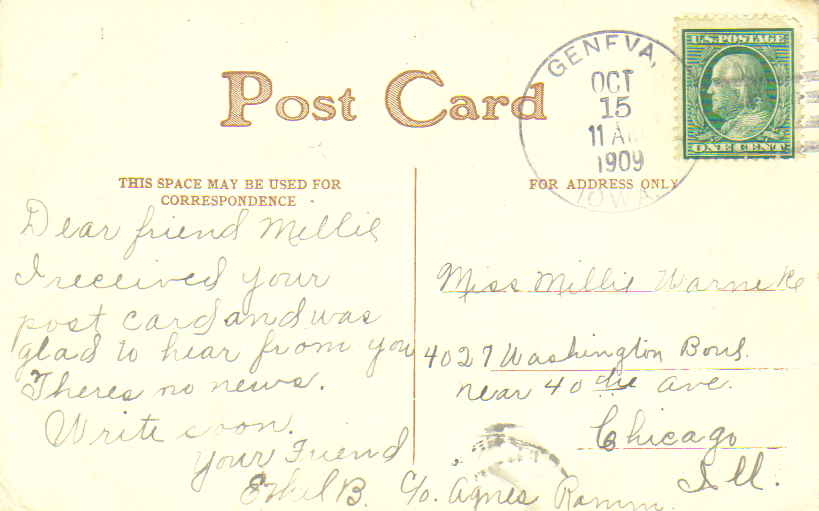 Post Card
GENEVA,
OCT
15
11 A
1909
IOWA.
U.S. POSTAGE
ONE CENT
THIS SPACE MAY BE USED FOR
CORRESPONDENCE
FOR ADDRESS ONLY
Dear friend Millie
I received your
post card and was
glad to hear from you
Theres no news.
Write soon.
Your Friend
Ethel B. C/o. Agnes Ramm.
Miss Millie Warneke
4027 Washington Boul.
near 40 the ave.
Chicago
Ill.